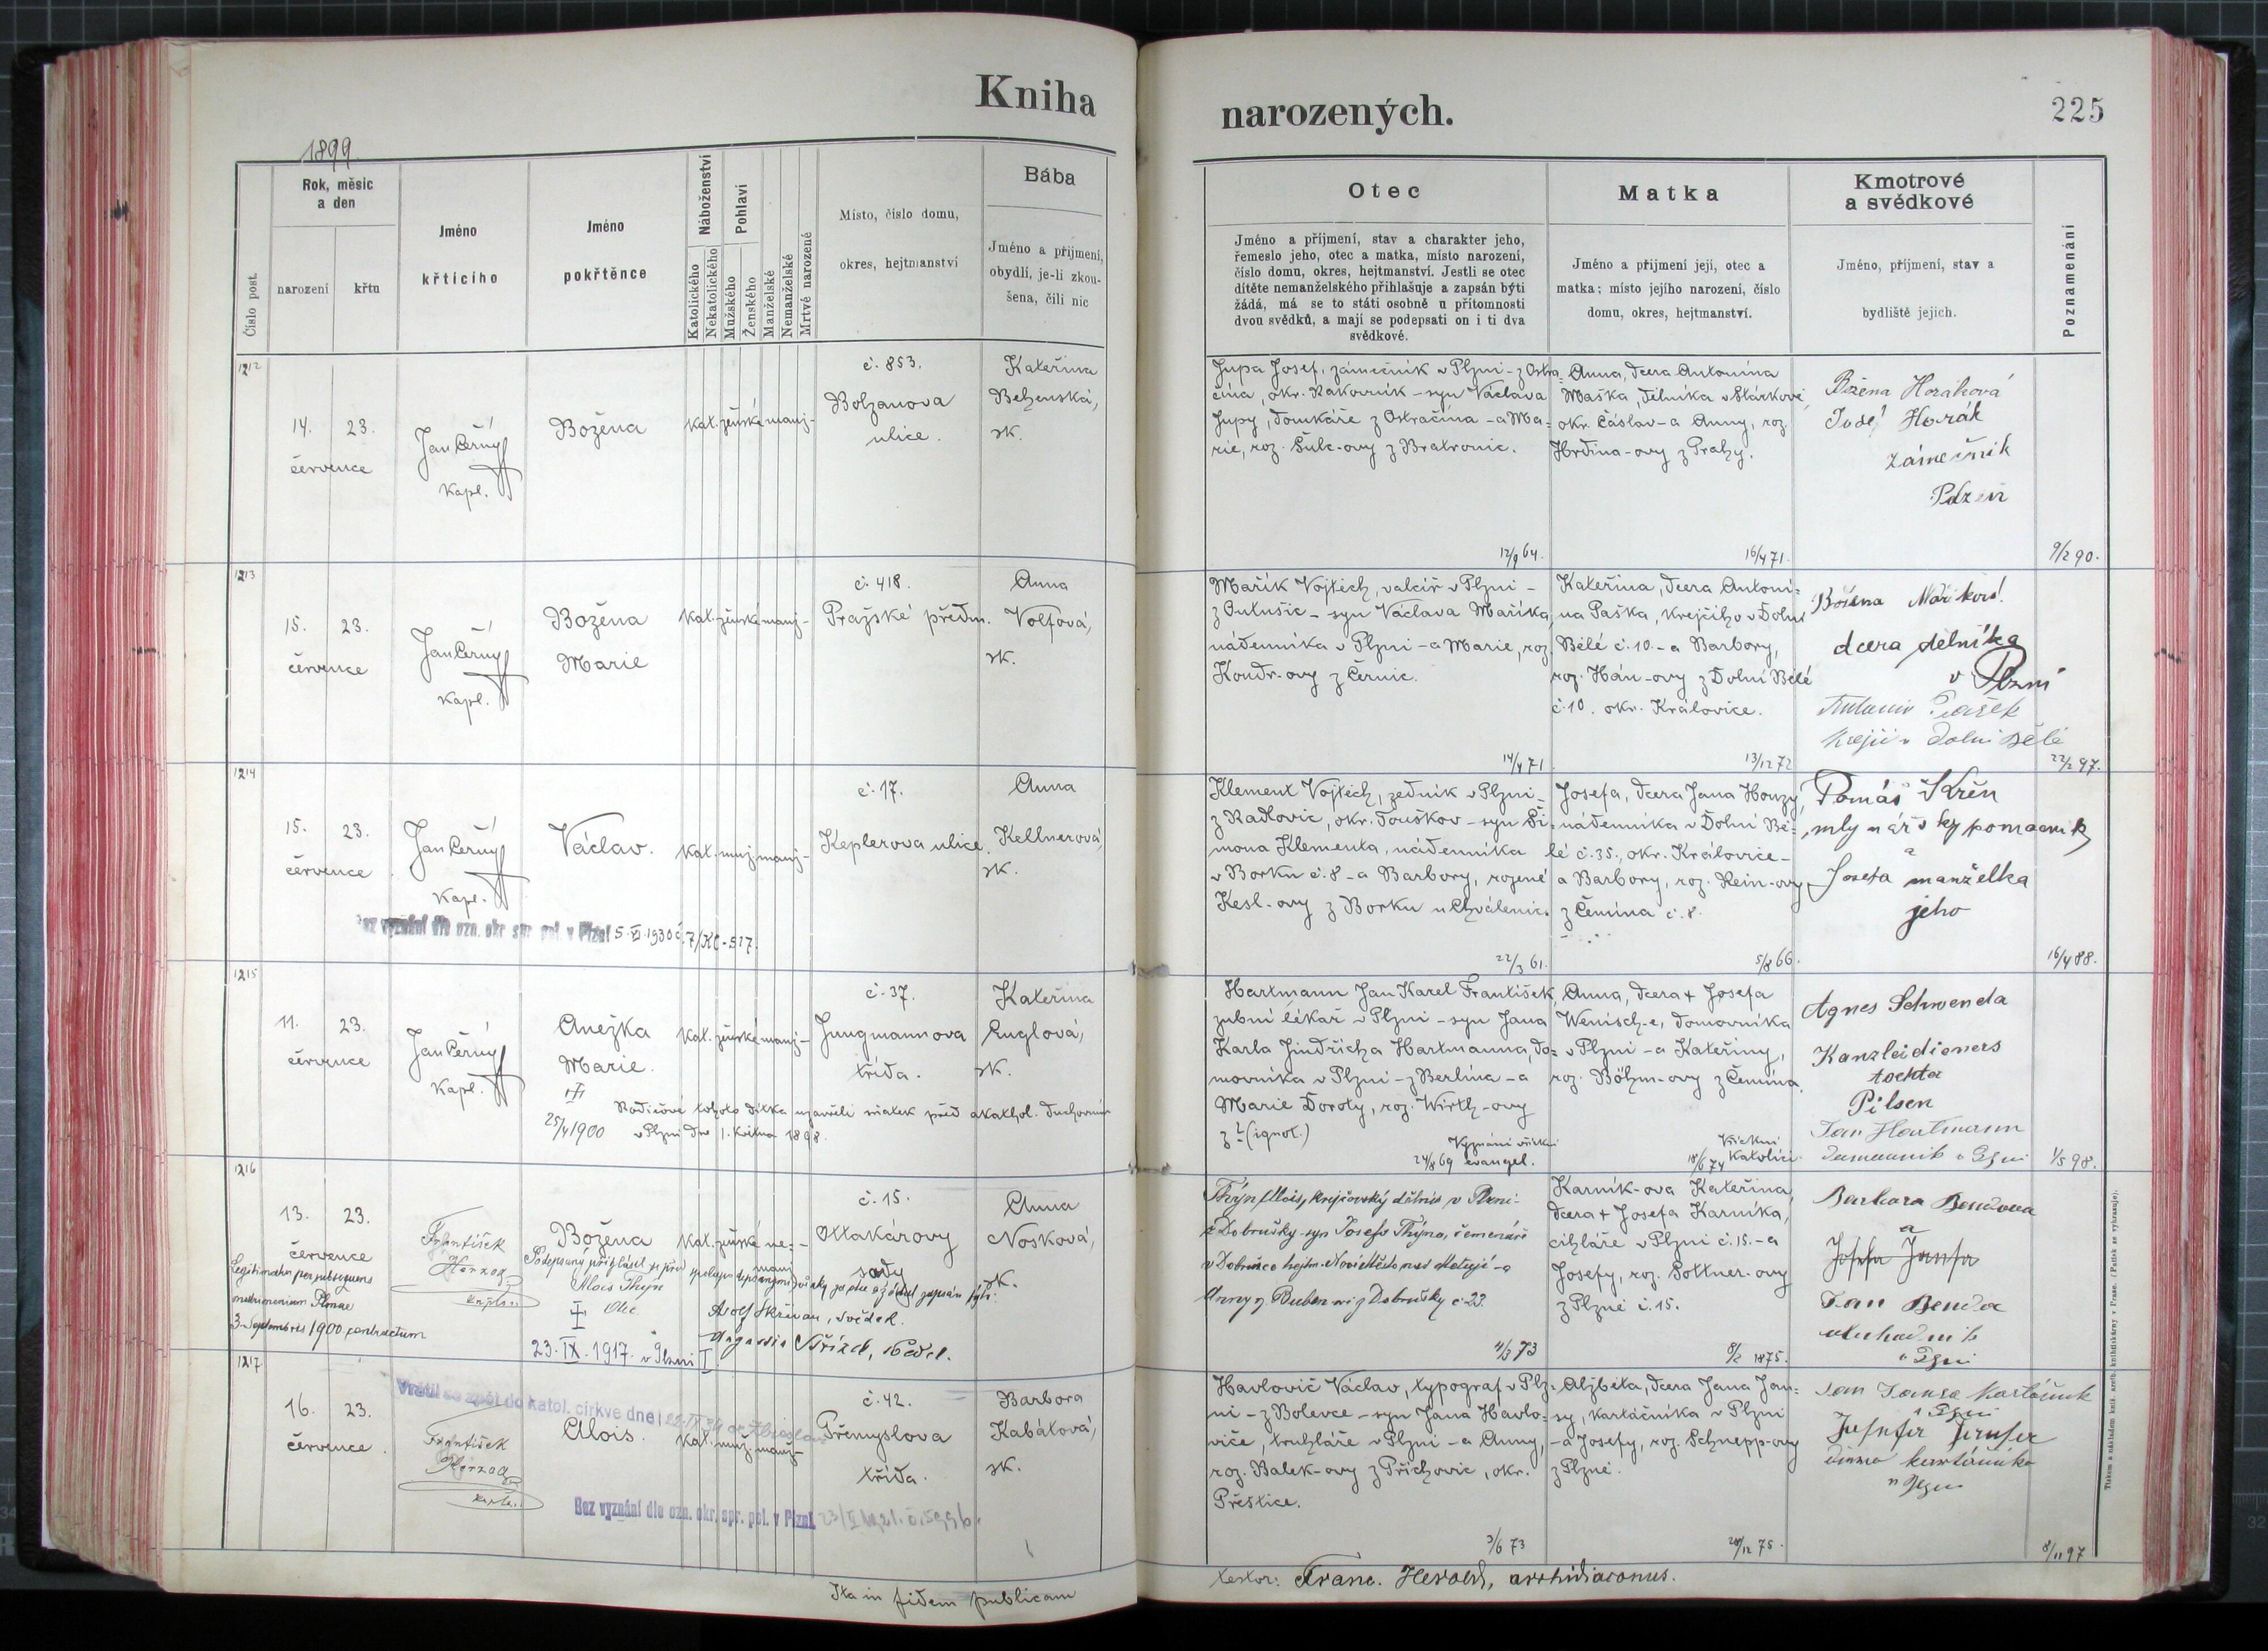 Kniha
narozených.
225
1899
Číslo post.
Rok, měsíc
a den
narození
křtu
Jméno
křtícího
Jméno
pokřtěnce
Náboženství
Katolického
Nekatolického
Pohlaví
Mužského
Ženského
Manželské
Nemanželské
Mrtvě narozené
Místo, číslo domu,
okres, hejtmanství
Bába
Jméno a příjmení,
obydlí, je-li zkou-
šena, čili nic
Otec
Jméno a příjmení, stav a charakter jeho,
řemeslo jeho, otec a matka, místo narození,
číslo domu, okres, hejtmanství. Jestli se otec
dítěte nemanželského přihlašuje a zapsán býti
žádá, má se to státi osobně u přítomnosti
dvou svědků, a mají se podepsati on i ti dva
svědkové.
Matka
Jméno a příjmení její, otec a
matka; místo jejího narození, číslo
domu, okres, hejtmanství.
Kmotrové
a svědkové
Jméno, příjmení, stav a
bydliště jejich.
Poznamenání
1212
14. 23.
července
Jan Černý
kapl.
Božena
kat. ženské manž-
č. 853.
Bolzanova
ulice.
Kateřina
Behenská,
zk.
Jupa Josef, zámečník v Plzni - z Ostra-
čína, okr. Rakovník - syn Václava
Jupy, doukáře z Ostračína - a Ma-
rie, roz. Šulc-ovy z Bratronic.
12/9 64.
Anna, dcera Antonína
Maška, dělníka v Stárkově,
okr. Čáslav - a Anny, roz.
Hrdina-ovy z Prahy.
16/4 71.
Božena Horáková
Josef Horák
zámečník
Plzeň
9/2 90.
1213
15. 23.
července
Jan Černý
kapl.
Božena
Marie
kat. ženské manž-
č. 418.
Pražské předm.
Anna
Volfová,
zk.
Mařík Vojtěch, valcíř v Plzni -
z Outušic - syn Václava Maříka,
nádenníka v Plzni - a Marie, roz.
Koudr-ovy z Černic.
14/4 71
Kateřina, dcera Antoní-
na Paška, krejčího v Dolní
Bělé č. 10. - a Barbory,
roz. Hán-ovy z Dolní Bělé
č. 10. okr. Královice.
13/12 72
Božena Maříková
dcera dělníka
v Plzni
Antonín Pašek
krejčí v Dolní Bělé
22/2 97.
1214
15. 23.
července
Jan Černý
kapl.
Václav.
kat. muž. manž-
č. 17.
Keplerova ulice.
Anna
Kellnerová,
zk.
Bez vyznání dle ozn. okr. spr. pol. v Plzni 5. XI. 1930 č. 7/KC-517.
Klement Vojtěch, zedník v Plzni -
z Radlovic, okr. Touškov - syn Ši-
mona Klementa, nádenníka
v Borku č. 8 - a Barbory, rozené
Kesl-ovy z Borku u Chválenic.
22/3 61.
Josefa, dcera Jana Houzy,
nádenníka v Dolní Bě-
lé č. 35., okr. Královice -
a Barbory, roz. Hein-ovy
z Čemína č. 8.
5/8 66.
Tomáš Křen
mlynářský pomocník
a
Josefa manželka
jeho
16/4 88.
1215
11. 23.
července
Jan Černý
kapl.
Anežka
Marie.
25/4 1900
kat. ženské manž-
č. 37.
Jungmannova
třída.
Kateřina
Englová,
zk.
Rodičové tohoto dítka uzavřeli sňatek před akathol. duchovním
v Plzni dne 1. května 1898.
Hartmann Jan Karel František,
zubní lékař v Plzni - syn Jana
Karla Jindřicha Hartmanna, do-
movníka v Plzni - z Berlína - a
Marie Doroty, roz. Wirth-ovy
z ? (ignot.)
Vyznání všichni
24/8 69 evangel.
Anna, dcera + Josefa
Wenisch-e, domovníka
v Plzni - a Kateřiny,
roz. Böhm-ovy z Čemína.
Všichni
18/6 74 katolíci.
Agnes Schwenda
Kanzleidieners
tochter
Pilsen
Jan Hartmann
domovník v Plzni
1/5 98.
1216
13. 23.
července
Legitimatus per subsequens
matrimonium Plznae
3. Septembris 1900 contractum
František
Herzog
kaplan
Božena
kat. ženské ne-
manž
č. 15.
Ottakárovy
sady
Anna
Nosková,
zk.
Podepsaný přihlásil se před spolupodepsanými svědky za otce a žádal zapsán býti:
Alois Thýn
Otec
Adolf Skřivan, svědek.
Střízel, svědek.
23. IX. 1917. v Plzni
Thýn Alois, krejčovský dělník v Plzni -
z Dobrušky - syn Josefa Thýna, řemenáře
v Dobrušce hejtm. Nové Město nad Metují - a
Anny r. Buben-ovy z Dobrušky č. 23.
11/3 73
Karník-ova Kateřina,
dcera + Josefa Karníka,
cihláře v Plzni č. 15. - a
Josefy, roz. Pottner-ovy
z Plzně č. 15.
8/2 1875.
Barbara Bendova
a
Josefa Jansa
Jan Benda
v Plzni
1217
16. 23.
července.
Vrátil se zpět do katol. církve dne
František
Herzog
kaplan
Alois.
kat. muž. manž-
č. 42.
Přemyslova
třída.
Barbora
Kabátová,
zk.
Bez vyznání dle ozn. okr. spr. pol. v Plzni.
Havlovič Václav, typograf v Plz-
ni - z Bolevce - syn Jana Havlo-
viče, truhláře v Plzni - a Anny,
roz. Balek-ovy z Příchovic, okr.
Přeštice.
3/6 73
Alžběta, dcera Jana Jan-
sy, kartáčníka v Plzni
- a Josefy, roz. Schnepp-ovy
z Plzně.
20/12 75.
Jan Jansa kartáčník
v Plzni
Josefa Jansa
žena kartáčníka
v Plzni
8/11 97
Ita in fidem publicam
testor: Franc. Herold, archidiaconus.
Tiskem a nákladem kníž. arcib. knihtiskárny v Praze. (Patisk se vyhrazuje).